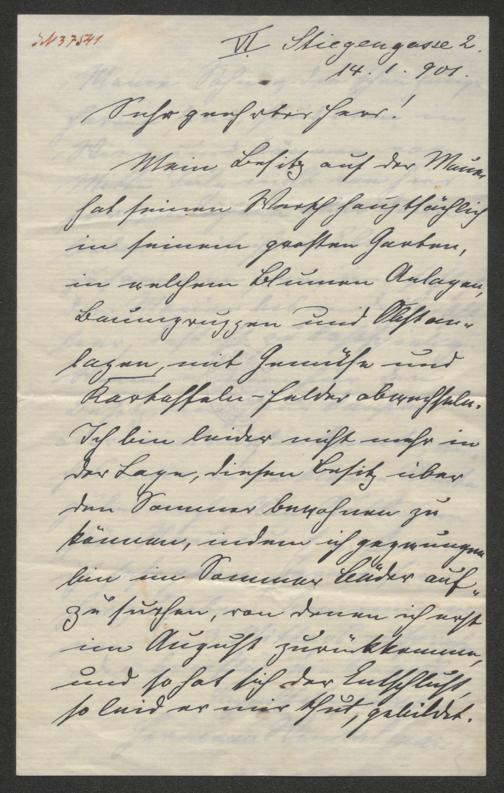 IN 37541
VI Stiegengasse 2.
14. 1. 901.
Sehr geehrter Herr!
Mein Besitz auf der Mauer
hat seinen Werth hauptsächlich
in seinem großen Garten,
in welchem Blumen Anlagen,
Baumgruppen und Obstan-
lagen, mit Gemüse und
Kartoffeln-felder abwechseln.
Ich bin leider nicht mehr in
der Lage, diesen Besitz über
den Sommer bewohnen zu
können, indem ich gezwungen
bin im Sommer Bäder auf-
zu suchen, von denen ich erst
im August zurückkomme,
und so hat sich der Entschluß,
so leid er mir thut, gebildet.